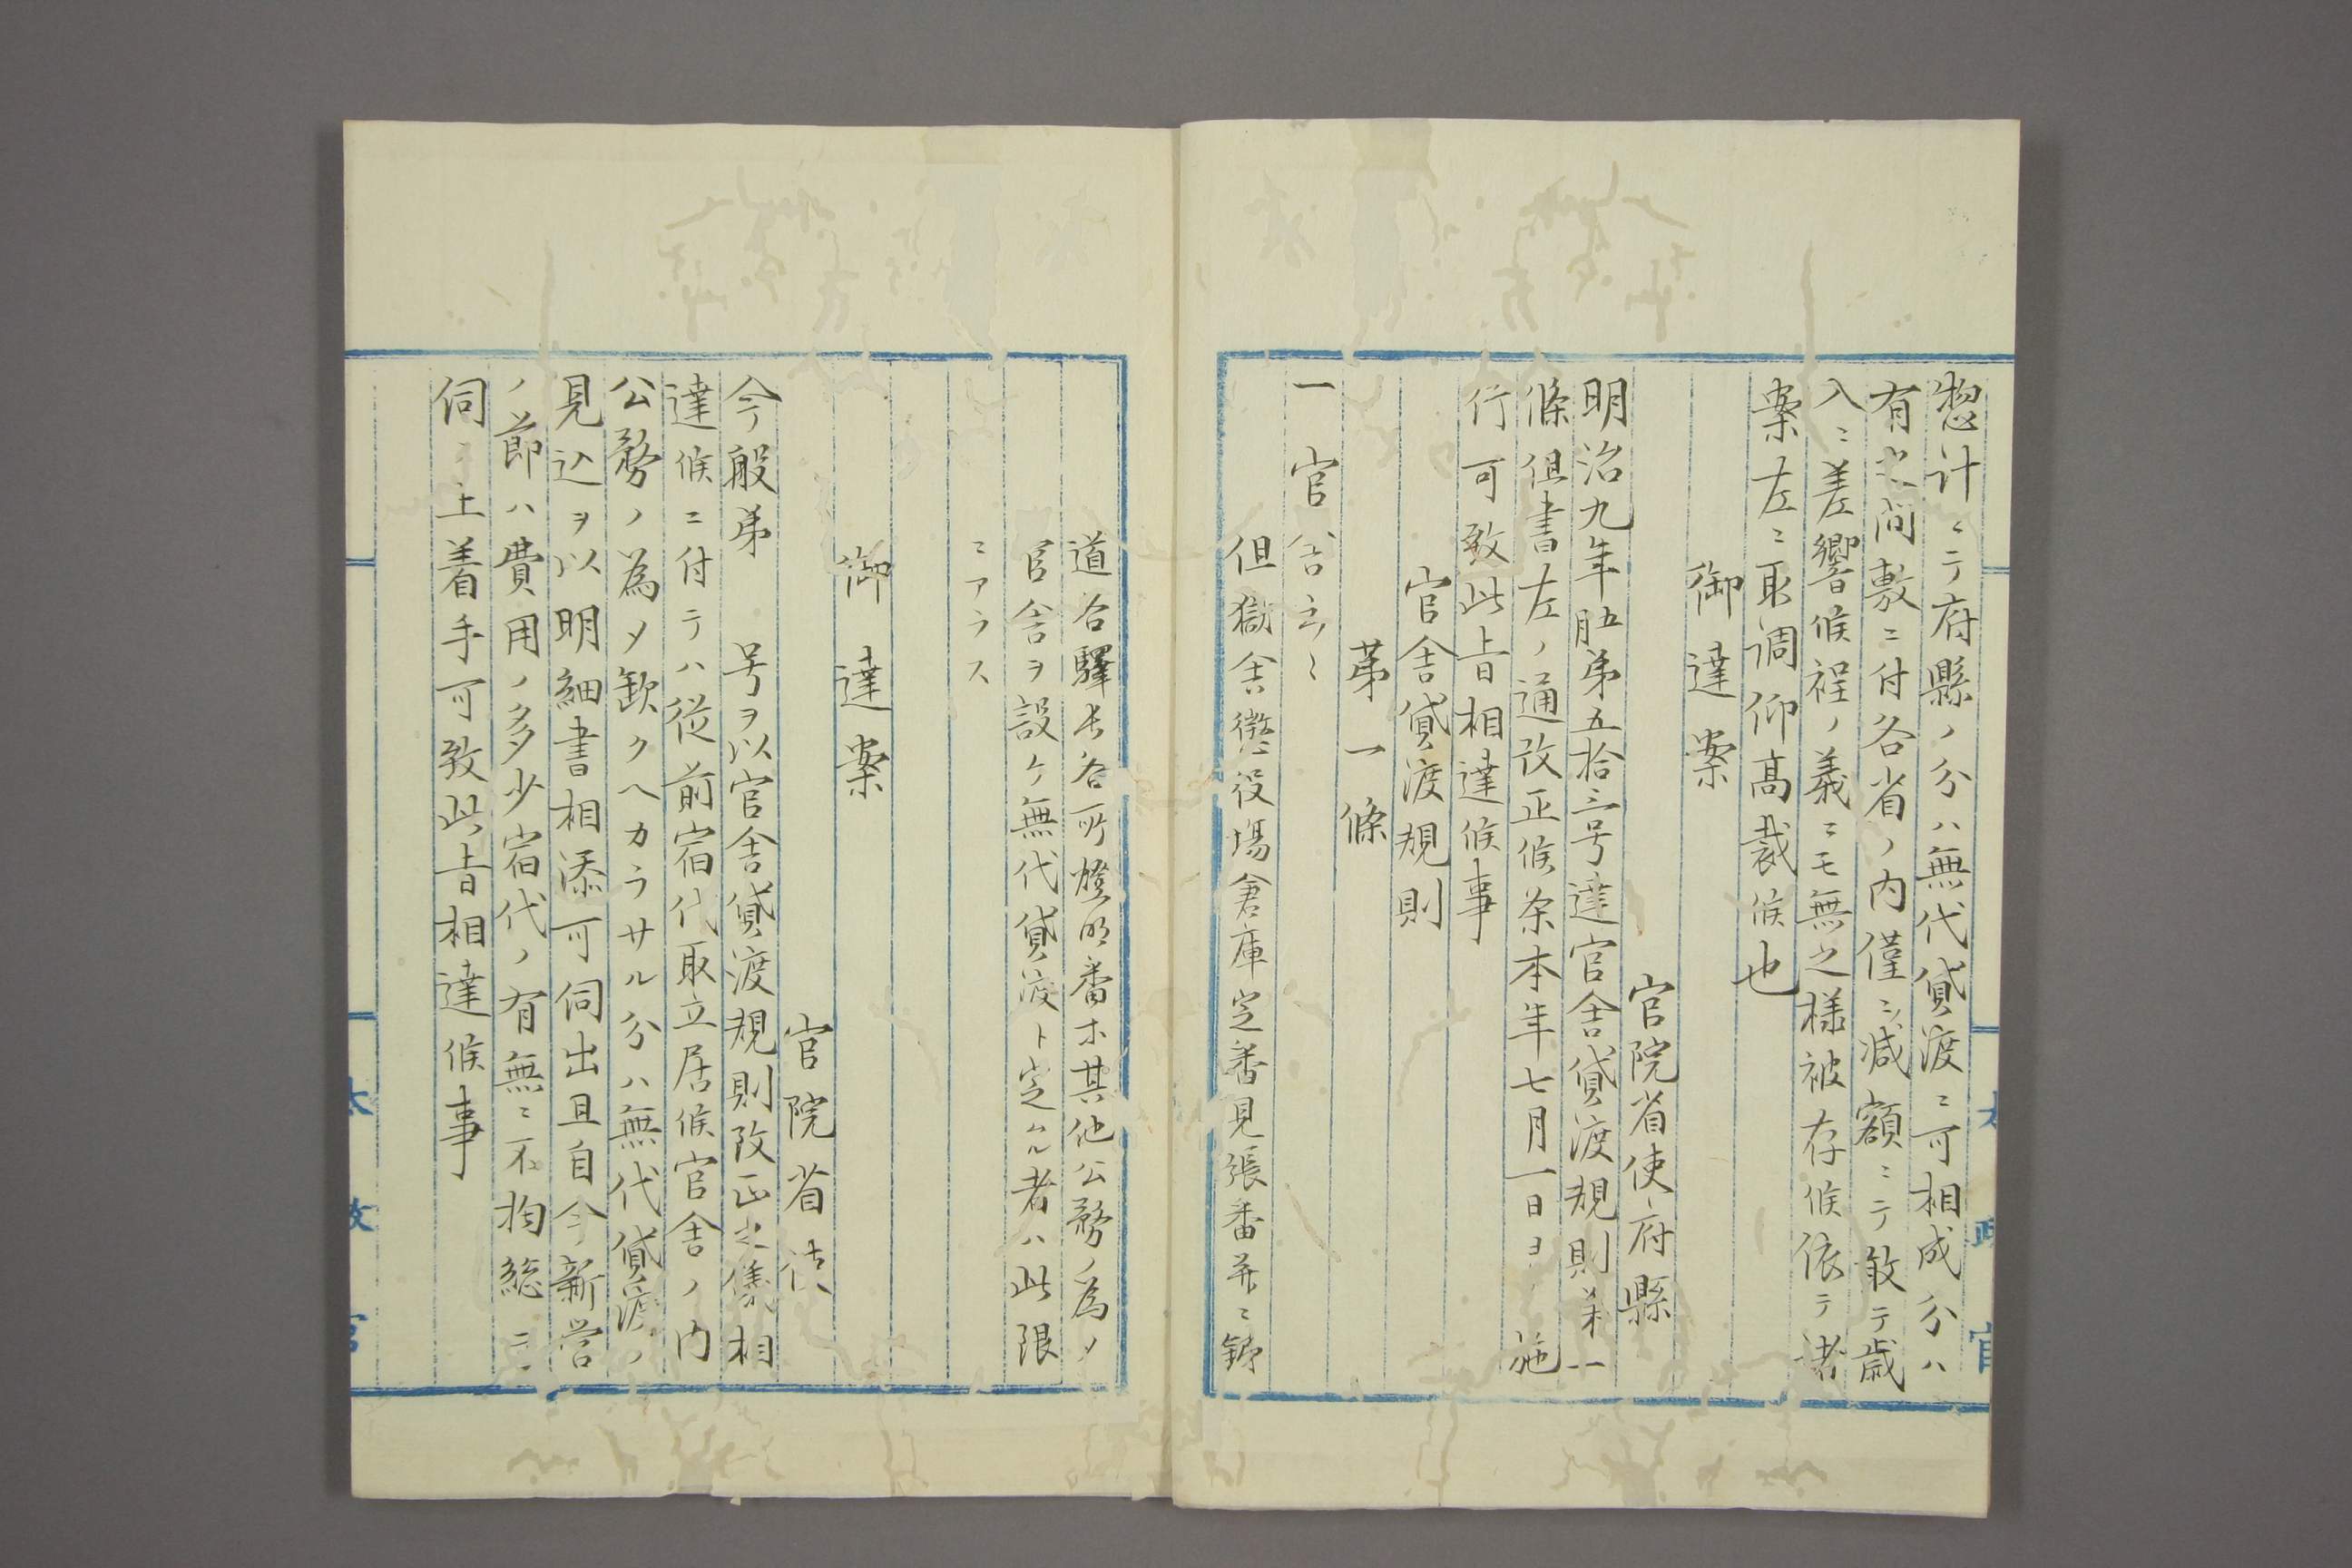 惣計ニテ府縣ノ分ハ無代貸渡ニ可相成分ハ
有之間敷ニ付各省ノ内僅ニ減額ニテ敢テ歳
入ニ差響候程ノ義ニモ無之様被存候依テ諸
案左ニ取調仰高裁候也
御達案
官院省使府縣
明治九年五月第五拾三号達官舎貸渡規則第一
條但書左ノ通改正候条本年七月一日ヨリ施
行可致此旨相達候事
官舎貸渡規則
第一條
一官舎云々
但獄舎懲役場倉庫定番見張番并ニ鉄
道各驛長各所燈明番等其他公務ノ為メ
官舎ヲ設ケ無代貸渡ト定ムル者ハ此限
ニアラス
御達案
官院省使
今般第　号ヲ以官舎貸渡規則改正之儀相
達候ニ付テハ従前宿代取立居候官舎ノ内
公務ノ為メ欽クヘカラサル分ハ無代貸渡ノ
見込ヲ以明細書相添可伺出且自今新営
ノ節ハ費用ノ多少宿代ノ有無ニ不拘総テ
伺ノ上着手可致此旨相達候事
太政官